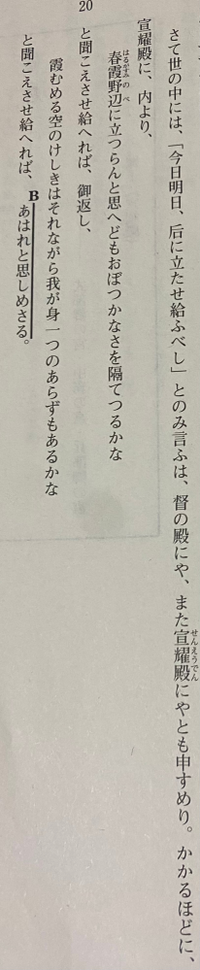 さて世の中には、「今日明日、后に立たせ給ふべし」とのみ言ふは、督の殿にや、また宣耀殿にやとも申すめり。かかるほどに、
せんえうでん
宣耀殿に、内より、
春霞野辺に立つらんと思へどもおぼつかなさを隔てつるかな
はるがすみのべ
と聞こえさせ給へれば、御返し、
20
霞むめる空のけしきはそれながら我が身一つのあらずもあるかな
と聞こえさせ給へれば、Bあはれと思しめさる。